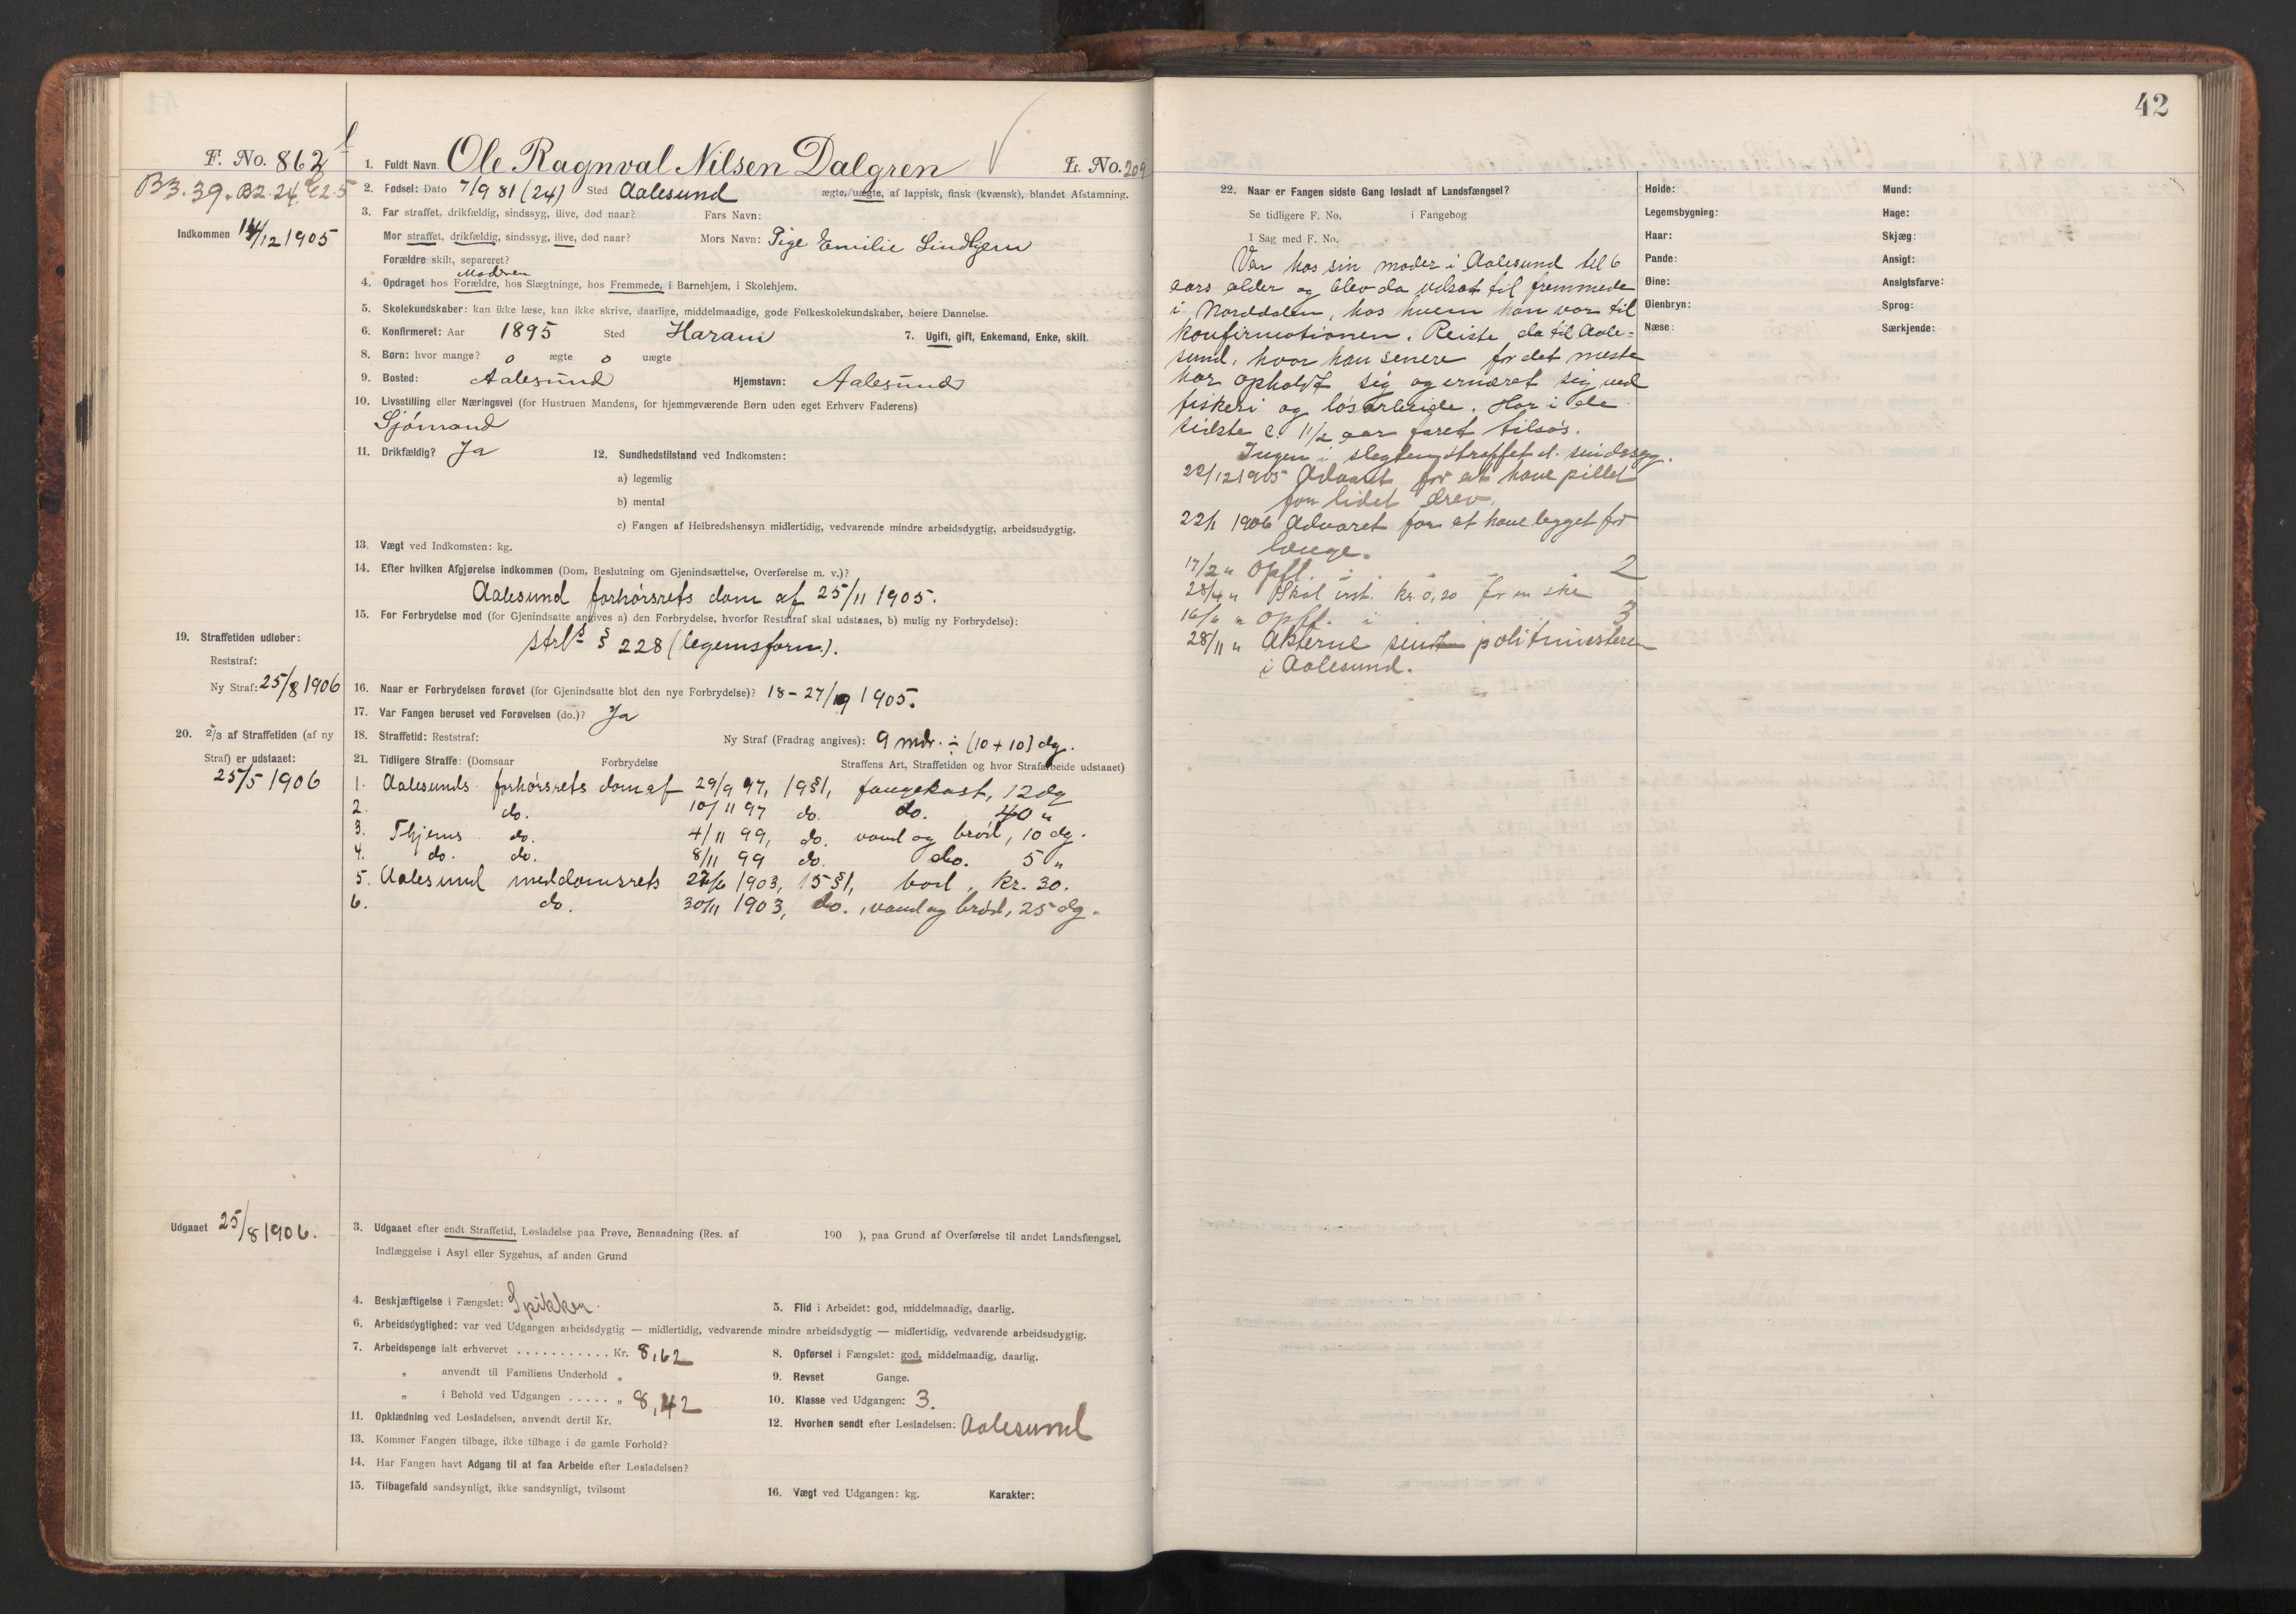 42
F. No. 862
1. Fuldt Navn Ole Ragnval Nilsen Dalgren L. No. 209
B3. 39. B2. 24. E2. 5
2. Fødsel: Dato 7/9 81 (24) Sted Aalesund ægte, uægte, af lappisk, finsk (kvænsk), blandet Afstamning.
Indkommen 14/12 1905
3. Far straffet, drikfældig, sindssyg, ilive, død naar? Fars Navn:
Mor straffet, drikfældig, sindssyg, ilive, død naar? Mors Navn: Pige Emilie
Forældre skilt, separeret?
Moderen
4. Opdraget hos Forældre, hos Slægtninge, hos Fremmede, i Barnehjem, i Skolehjem.
5. Skolekundskaber: kan ikke læse, kan ikke skrive, daarlige, middelmaadige, gode Folkeskolekundskaber, høiere Dannelse.
6. Konfirmeret: Aar 1895 Sted Haram 7. Ugift, gift, Enkemand, Enke, skilt.
8. Børn: hvor mange? 0 ægte 0 uægte
9. Bosted: Aalesund Hjemstavn: Aalesund
10. Livsstilling eller Næringsvei (for Hustruen Mandens, for hjemmeværende Børn uden eget Erhverv Faderens)
Sjømand
11. Drikfældig? Ja 12. Sundhedstilstand ved Indkomsten:
a) legemlig
b) mental
c) Fangen af Helbredshensyn midlertidig, vedvarende mindre arbeidsdygtig, arbeidsudygtig.
13. Vægt ved Indkomsten: kg.
14. Efter hvilken Afgjørelse indkommen (Dom, Beslutning om Gjenindsættelse, Overførelse m. v.)?
Aalesund forhørsrets dom af 25/11 1905.
15. For Forbrydelse mod (for Gjenindsatte angives a) den Forbrydelse, hvorfor Reststraf skal udstaaes, b) mulig ny Forbrydelse):
strl's § 228 (legemsforn.).
19. Straffetiden udløber:
Reststraf:
Ny Straf: 25/8 1906
16. Naar er Forbrydelsen forøvet (for Gjenindsatte blot den nye Forbrydelse)? 18-27/9 1905.
17. Var Fangen beruset ved Forøvelsen (do.)? Ja
20. 2/3 af Straffetiden (af ny
Straf) er udstaaet:
25/5 1906
18. Straffetid: Reststraf: Ny Straf (Fradrag angives): 9 mdr. ÷ (10 + 10) dg.
21. Tidligere Straffe: (Domsaar Forbrydelse Straffens Art, Straffetiden og hvor Strafarbeide udstaaet)
1. Aalesunds forhørsrets dom af 29/9 97, 19§1, fangekost, 12 dg
2. do. 10/11 97 do. do. 40 "
3. Thjems do. 4/11 99, do. vand og brød, 10 dg.
4. do. do. 8/11 99 do. do. 5 "
5. Aalesund meddomsrets 1903, 15§1, bod, kr. 30.
6. do. 30/11 1903, do., vand og brød, 25 dg.
Udgaaet 25/8 1906.
3. Udgaaet efter endt Straffetid, Løsladelse paa Prøve, Benaadning (Res. af 190 ), paa Grund af Overførelse til andet Landsfængsel,
Indlæggelse i Asyl eller Sygehus, af anden Grund
4. Beskjæftigelse i Fængslet: Spikker. 5. Flid i Arbeidet: god, middelmaadig, daarlig.
6. Arbeidsdygtighed: var ved Udgangen arbeidsdygtig — midlertidig, vedvarende mindre arbeidsdygtig — midlertidig, vedvarende arbeidsudygtig.
7. Arbeidspenge ialt erhvervet . . . . . . . . . . . Kr. 8,62 8. Opførsel i Fængslet: god, middelmaadig, daarlig.
" anvendt til Familiens Underhold " 9. Revset Gange.
" i Behold ved Udgangen . . . . . " 8,42 10. Klasse ved Udgangen: 3.
11. Opklædning ved Løsladelsen, anvendt dertil Kr. 12. Hvorhen sendt efter Løsladelsen: Aalesund
13. Kommer Fangen tilbage, ikke tilbage i de gamle Forhold?
14. Har Fangen havt Adgang til at faa Arbeide efter Løsladelsen?
15. Tilbagefald sandsynligt, ikke sandsynligt, tvilsomt 16. Vægt ved Udgangen: kg. Karakter:
22. Naar er Fangen sidste Gang løsladt af Landsfængsel?
Se tidligere F. No. i Fangebog
I Sag med F. No.
Var hos sin moder i Aalesund til 6
aars alder og blev da udsat til fremmede
i Norddalen, hos hvem han var til
konfirmationen. Reiste da til Aale-
sund, hvor han senere for det meste
har opholdt sig og ernæret sig ved
fiskeri og løsarbeide. Har i de
sidste c. 1 1/2 aar faret tilsøs.
Ingen i slegten straffet el. sindssyg.
22/12 1905 Advaret for at have pillet
for lidet drev.
22/1 1906 Advaret for at have legget for
længe.
17/2 " Opfl. i 2
28/4 " Skal erst. kr. 0,20 for en ske
16/6 " Opfl. i 3
28/11 " Akterne sendt politimesteren
i Aalesund.
Høide: Mund:
Legemsbygning: Hage:
Haar: Skjæg:
Pande: Ansigt:
Øine: Ansigtsfarve:
Øienbryn: Sprog:
Næse: Særkjende: